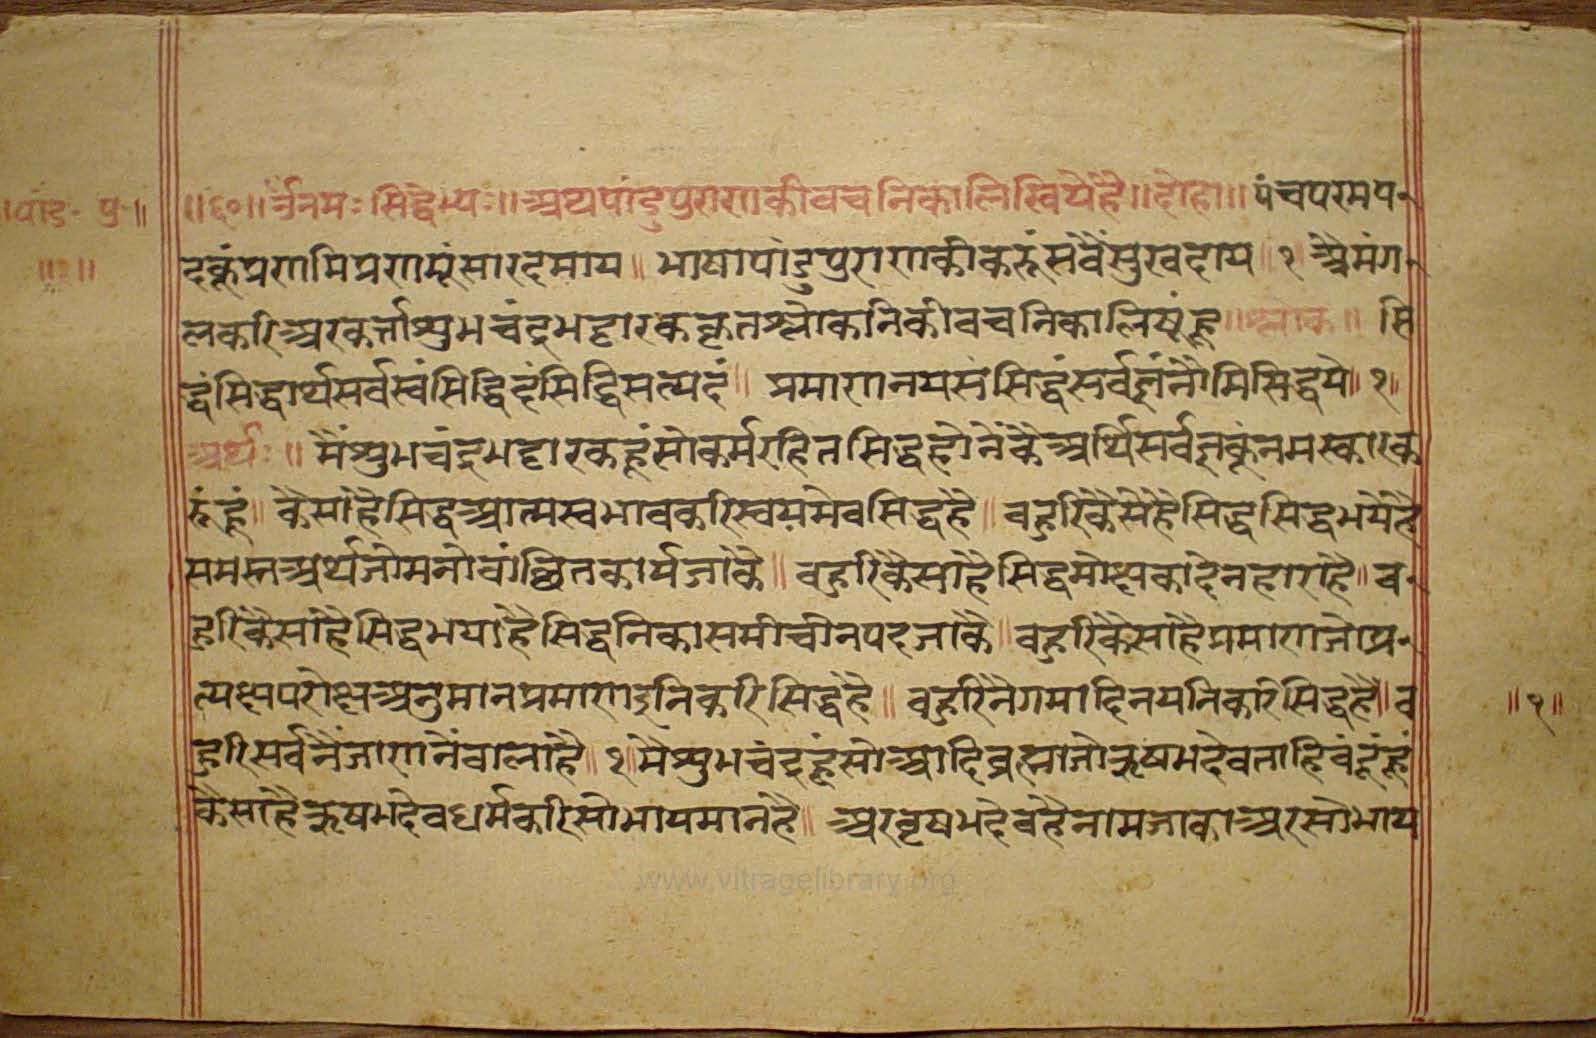 ॥पांडु॰ पु॰॥
॥६०॥ ॐनमः सिद्धेभ्यः॥ अथपांडुपुराणकीवचनिकालिखियेहै॥दोहा॥ पंचपरमप
दकूंप्रणमिप्रणमूंसारदमाय॥ भाषापांडुपुराणकीकरूंसवैसुखदाय १ असैमंग
लकरिअरकर्त्ताशुभचंद्रभट्टारककृतश्लोकनिकीवचनिकालिषूंहू ॥श्लोक॥ सि
द्धंसिद्धार्थसर्वस्वंसिद्धिदंसिद्धिसत्पदं॥ प्रमाणनयसंसिद्धंसर्वज्ञंनौमिसिद्धये॥१॥
अर्थः॥ मैंशुभचंद्रभट्टारकहूंसोकर्मरहितसिद्धहोनेंकैअर्थिसर्वज्ञकूंनमस्कारक
रूंहूं॥ कैसाहैसिद्धआत्मस्वभावकरिस्वयमेवसिद्धहै॥ बहुरिकैसेहैसिद्धसिद्धभयेहै
समस्तअर्थजोमनोवांछितकार्यजाकै॥ बहुरिकैसाहैसिद्धमोक्षकादेनहाराहै॥ ब
हुरिकैसाहैसिद्धभयाहैसिद्धनिकासमीचीनपदजाकै॥ बहुरिकैसाहैप्रमाणजोप्र
त्यक्षपरोक्षअनुमानप्रमाणइनिकरिसिद्धहै॥ बहुरिनैगमादिनयनिकरिसिद्धहै॥ ब
हुरिसर्वनैंजाणनेंवालाहै॥१॥मैशुभचंद्रहूंसोआदिब्रह्माजोऋषभदेवताहिवंदूंहूं
कैसाहैऋषभदेवधर्मकरिसोभायमानहै॥ अरवृषभदेवहैनामजाकाअरसोभाय
॥१॥
www.vitragelibrary.org